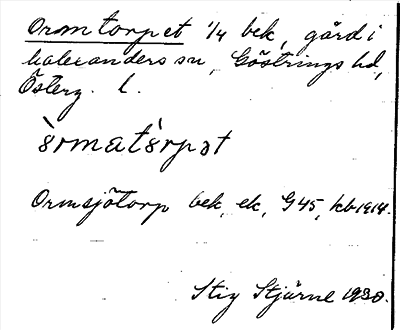 Ormtorpet 1/4 bek, gård i
Valexanders sn, Göstrings hd,
Österg. l.
òrmatòrpət
Ormsjötorp bek, ek, G45, kb 1914.
Stig Stjärne 1930.